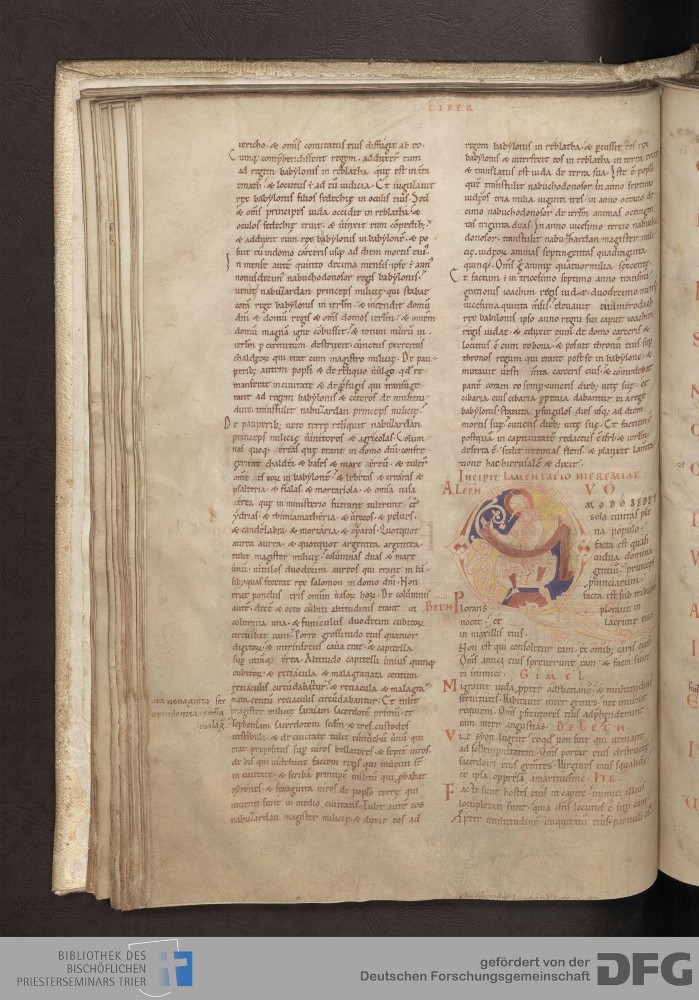 LIBER
iericho. & omis comitatus eius diffugit ab eo.
Cumq; comprehendissent regem. adduxert eum
ad regem babylonis in reblatha que est in tra
emath. & locutus e ad eu iudicia. Et iugulauit
rex babylonis filios sedechie in oculis eius. Sed
& oms principes iuda occidit in reblatha. &
oculos sedechie eruit. & uinxit eum
& adduxit eum rex babylonis in babylone. & po
suit eu in domo carceris usq; ad diem mortis eius.
In mense aute quinto decima mensis. ipse e ann
nonusdecim nabuchodonosor regis babylonis.
uenit nabuzardan princeps milicie. qui stabat
cora rege babylonis in ierlm. & incendit domu
dni & domu regis & oms domos ierlm. & omem
domu magna igne cobussit. & totum muru in
ierlm p circuitum destruxit. cunctus exercitus
chaldeor qui erat cum magistro milicie. De pau
perib; autem popli & de reliquo uulgo. qd re
manserat in ciuitate & de pfugis qui transfuge
rant ad regem babylonis & ceteros de multitu
dine. transtulit nabuzardan princeps milicie.
De pauperib; uero terre reliquit nabuzardan
princeps milicie uinitores & agricolas. Colum
nas quoq; ereas que erant in domo dni confre
gerunt chaldei. & bases & mare ereu. & tuler
ome es eor in babylone. & lebetes & creagras &
psalteria. & fialas. & mortariola. & omia uasa
erea que in ministerio fuerant tulerunt. et
ydrias. & thimiamatheria. & urceos. & pelues.
& candelabra. & mortaria. & cyatos. Quotquot
aurea aurea. & quotquot argentea argentea.
tulit magister milicie. columnas duas & mare
unu. uitulos duodecim aureos qui erant in ba
sib; quas fecerat rex salomon in domo dni. Non
erat pondus eris omium uasor hor. De columnis
aute. dece & octo cubiti altitudinis erant in
columna una. & funiculus duodecim cubitor
circuibat eam. Porro grossitudo eius quatuor
digitor. & intrinsecus caua erat. & capitella
sup utraq; erea. Altitudo capitelli unius quinq;
cubitor. & reciacula. & malagranata centum
reciaculis circudabatur. & retiacula. & malagra
nata centu reciaculis circudabantur. Et tulit
magister milicie saraiam sacerdote primu. et
sephoniam sacerdotem secdm. & tres custodes
uestibuli. & de ciuitate tulit eunuchu unu qui
erat prepositus sup uiros bellatores. & septe uiros.
de his qui uidebant faciem regis qui inuenti st
in ciuitate. & scriba principe militu qui pbabat
tyrones. & sexaginta uiros de poplo terre qui
inuenti sunt in medio ciuitatis. Tulit aute eos
nabuzardan magister milicie. & duxit eos ad
regem babylonis in reblatha. & pcussit eos rex
babylonis & interfecit eos in reblatha in terra
& translatus est iuda de terra sua. Iste e popls
que transtulit nabuchodonosor. In anno septimo
iudeos tria milia uiginti tres. in anno octauo de
cimo nabuchodonosor. de ierlm animas octingen
tas triginta duas. In anno uicesimo tercio nabucho
donosor. transtulit nabuzardan magister mili
cie. iudeor animas septingentas quadraginta
quinq;. Oms g anime quatuor milia sexcente.
Et factum e in tricesimo septimo anno transmi
grationis ioachim regis iudae. duodecimo mense
uicesima quinta msis. eleuauit euilmerodach
rex babylonis ipso anno regni sui caput ioachim
regis iudae. & eduxit eum de domo carceris. &
locutus e cum eo bona. & posuit thronu eius sup
thronos regum qui erant post se in babylone. &
mutauit uesti mta carceris eius. & comedebat
pane coram eo semp cunctis dieb; uite sue. et
cibaria eius cibaria ppetua dabantur ei a rege
babylonis. statuta p singulos dies usq; ad diem
mortis sue. cunctis dieb; uite sue. Et factum e
postqua in captiuitate redactus e isrl. & ierlm
deserta e. sedit ieremias flens. & planxit lamta
tione hac hierusale. & dixit.
INCIPIT LAMENTATIO HIEREMIAE
ALEPH
QVO
MODO SEDET
sola ciuitas ple
na populo.
facta est quasi
uidua domina
gentiu. princeps
puinciarum.
facta est sub tributo
BETH Plorans plorauit in
nocte. et lacrime eius
in maxillis eius.
Non est qui consoletur eam. ex omib; caris eius.
Oms amici eius spreuerunt eam. & facti sunt
ei inimici. GIMEL
Migrauit iuda ppter afflictione. & multitudine
seruitutis. habitauit inter gentes. nec inuenit
requiem. Oms psecutores eius adphenderunt
eam inter angustias. DELETH.
Vie syon lugent. eo qd non sint qui ueniant
ad sollempnitatem. Oms porte eius destructe.
sacerdotes eius gementes. uirgines eius squalide
et ipsa oppressa amaritudine. HE.
Facti sunt hostes eius in capite. inimici illius
locupletati sunt. quia dns locutus e sup eam
Apter multitudine iniquitatu eius. paruuli ei
BIBLIOTHEK DES
BISCHÖFLICHEN
PRIESTERSEMINARS TRIER
gefördert von der
Deutschen Forschungsgemeinschaft
DFG